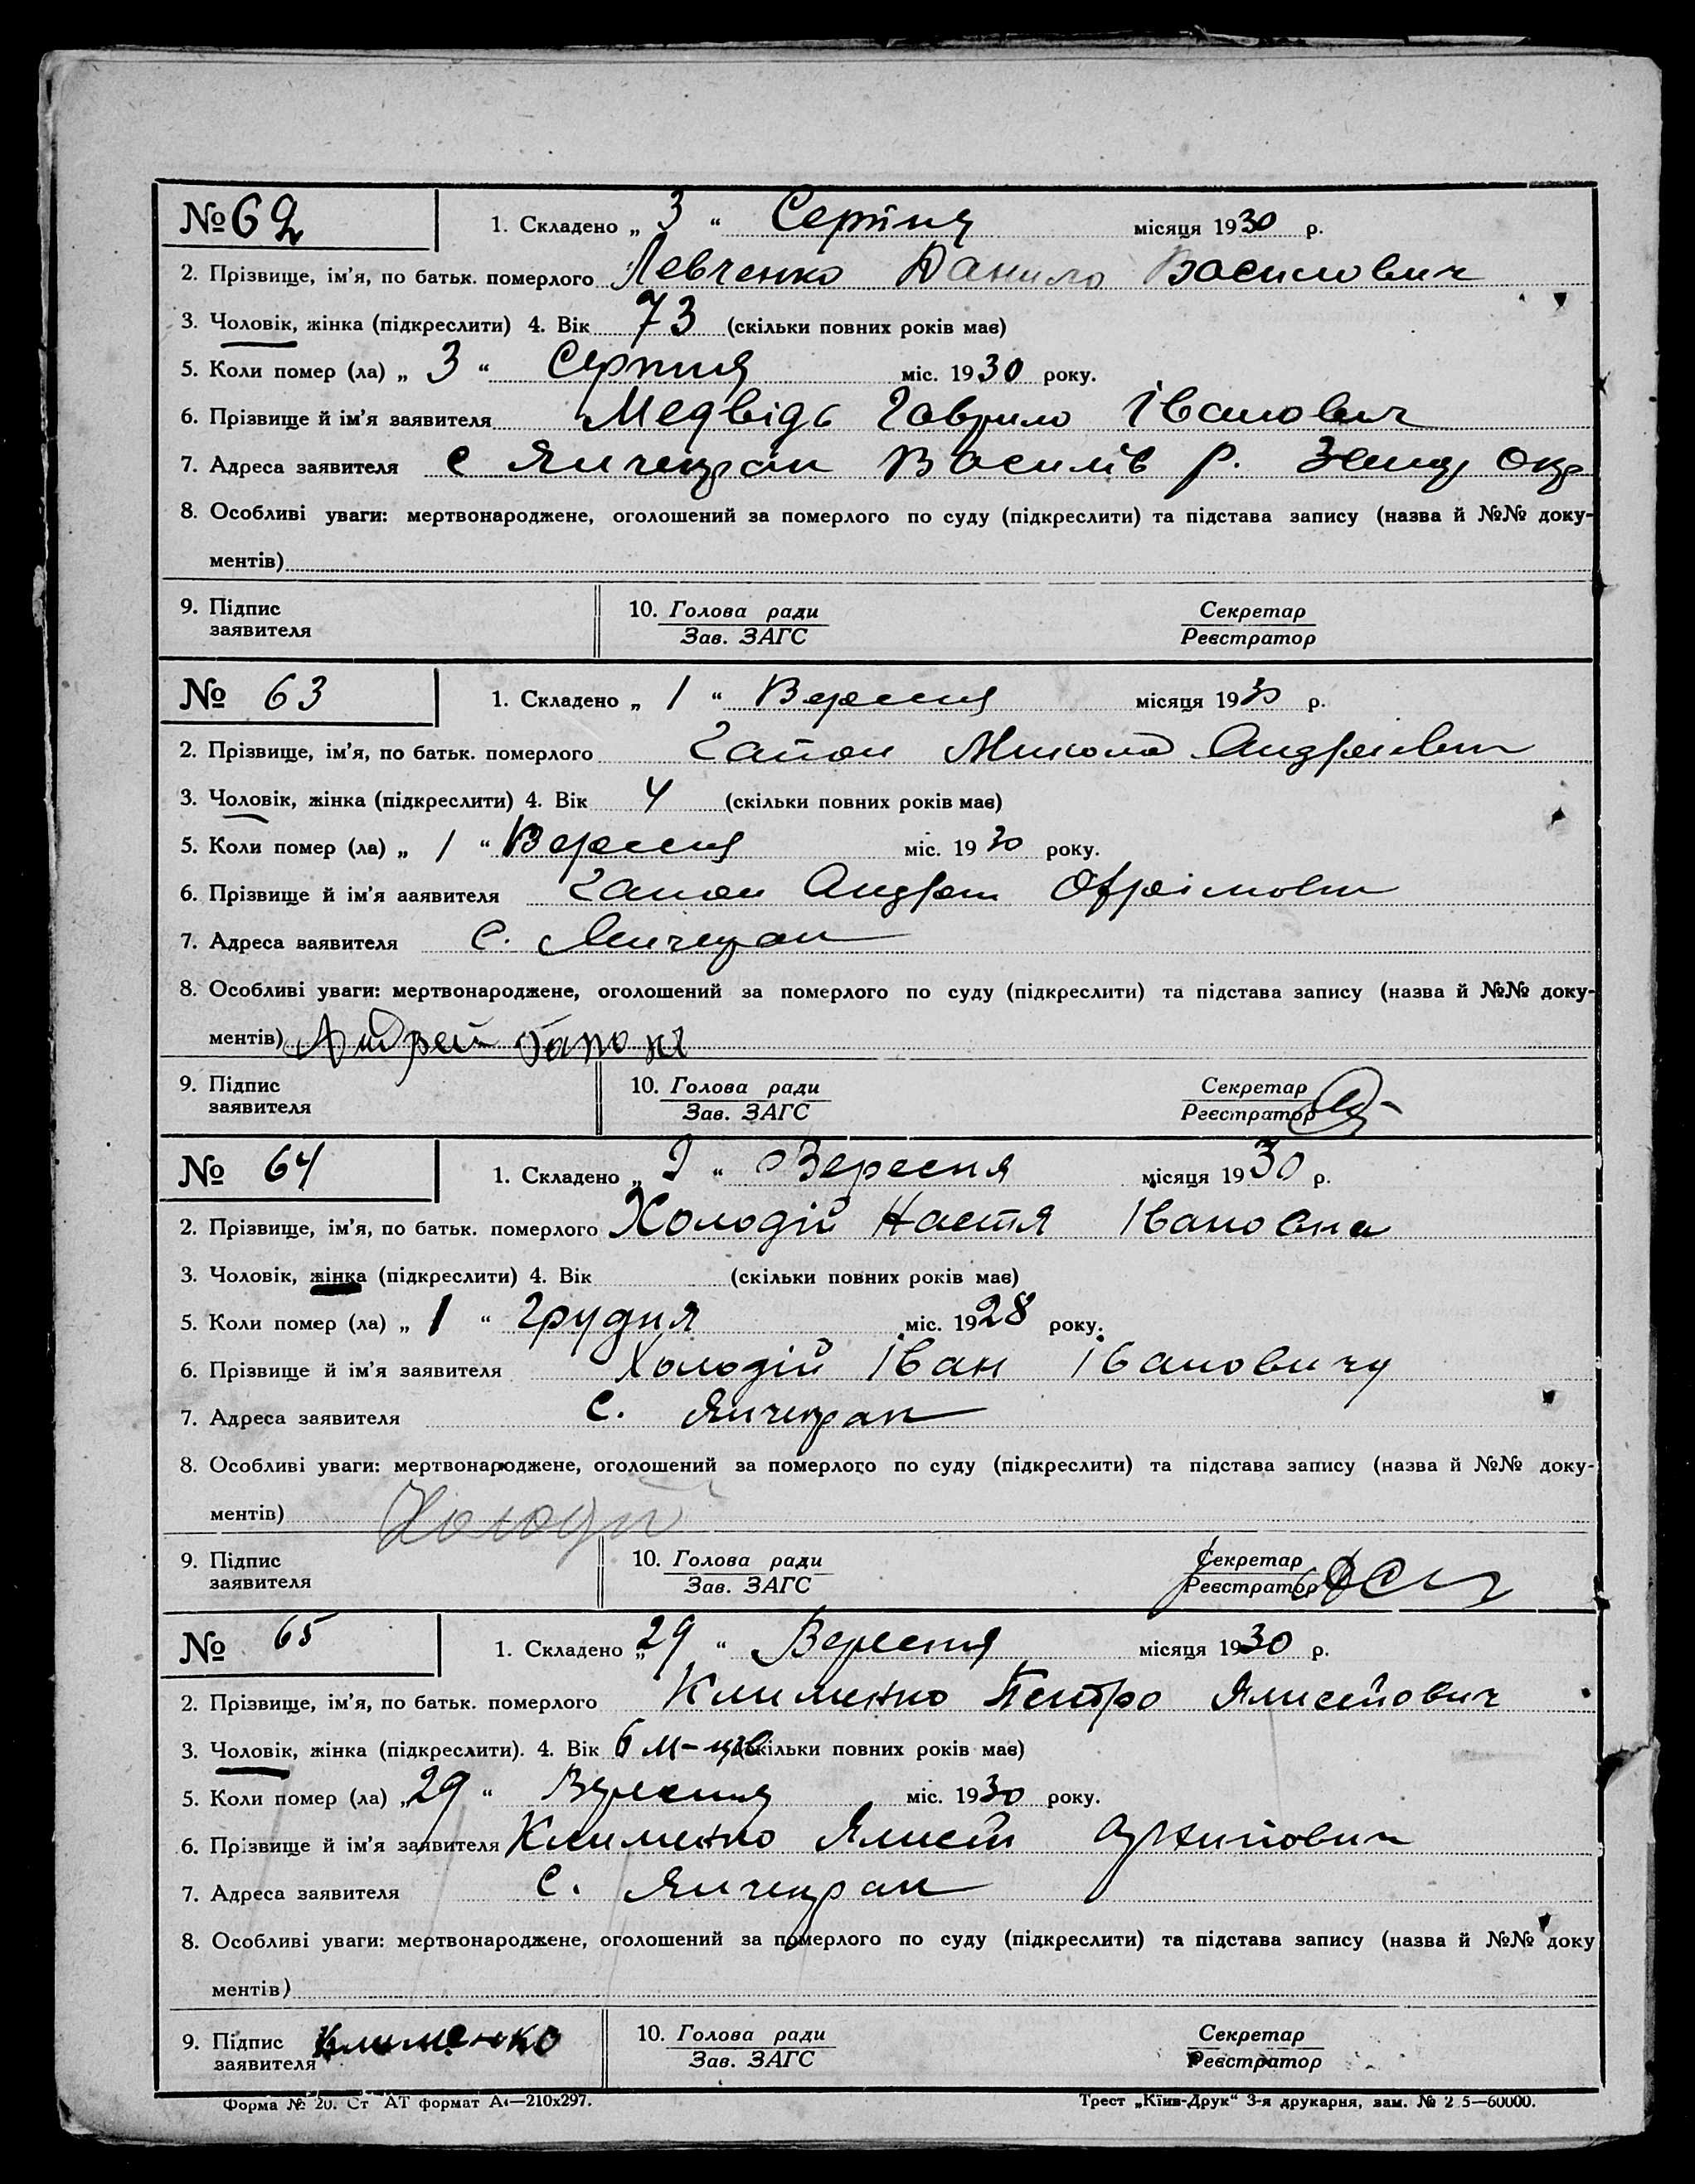 № 62 1. Складено „ 3 “ Серпня місяця 1930 р.
2. Прізвище, ім'я, по батьк. померлого Левченко Данило Василович
3. Чоловік, жінка (підкреслити) 4. Вік 73 (скільки повних років має)
5. Коли помер (ла) „ 3 “ Серпня міс. 1930 року.
6. Прізвище й ім'я заявителя Медвідь Гаврило Іванович
7. Адреса заявителя с Янчекрак Василів р.
8. Особливі уваги: мертвонароджене, оголошений за померлого по суду (підкреслити) та підстава запису (назва й №№ доку-
ментів)
9. Підпис 10. Голова ради Секретар
заявителя Зав. ЗАГС Реєстратор
№ 63 1. Складено „ 1 “ Вересня місяця 1930 р.
2. Прізвище, ім'я, по батьк. померлого Гапон Микола Андреєвич
3. Чоловік, жінка (підкреслити) 4. Вік 4 (скільки повних років має)
5. Коли помер (ла) „ 1 “ Вересня міс. 1930 року.
6. Прізвище й ім'я ааявителя Гапон Андрей
7. Адреса ваявителя с. Янчекрак
8. Особливі уваги: мертвонароджене, оголошений за померлого по суду (підкреслити) та підстава запису (назва й №№ доку-
ментів) Андрей Гапон
9. Підпис 10. Голова ради Секретар
заявителя Зав. ЗАГС Реєстратор
№ 64 1. Складено „ 2 “ Вересня місяця 1930 р.
2. Прізвище, ім'я, по батьк. померлого Холодій Настя Івановна
3. Чоловік, жінка (підкреслити) 4. Вік (скільки повних років має)
5. Коли помер (ла) „ 1 “ Грудня міс. 1928 року.
6. Прізвище й ім'я заявителя Холодій Іван Івановичу
7. Адреса заявителя с. Янчекрак
8. Особливі уваги: мертвонароджене, оголошений за померлого по суду (підкреслити) та підстава запису (назва й №№ доку-
ментів) Холодій
9. Підпис 10. Голова ради Секретар
заявителя Зав. ЗАГС Реєстратор
№ 65 1. Складено „ 29 “ Вересня місяця 1930 р.
2. Прізвище, ім'я, по батьк. померлого Клименко Пентро
3. Чоловік, жінка (підкреслити). 4. Вік 6 м-ців (скільки повних років має)
5. Коли помер (ла) „ 29 “ Вересня міс. 1930 року.
6. Прізвище й ім'я заявителя Клименко
7. Адреса заявителя с. Янчекрак
8. Особливі уваги: мертвонароджене, оголошений за померлого по суду (підкреслити) та підстава запису (назва й №№ доку
ментів)
9. Підпис Клименко 10. Голова ради Секретар
заявителя Зав. ЗАГС Реєстратор
Форма № 20. Ст АТ формат А4—210х297. Трест „Київ-Друк“ 3-я друкарня, зам. № 2 5—60000.